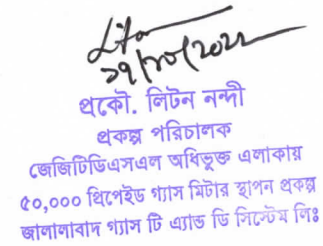 ২৭/১০/২০২২
প্রকৌ. লিটন নন্দী
প্রকল্প পরিচালক
জেজিটিডিএসএল অধিভুক্ত এলাকায়
৫০,০০০ প্রিপেইড গ্যাস মিটার স্থাপন প্রকল্প
জালালাবাদ গ্যাস টি এ্যান্ড ডি সিস্টেম লিঃ